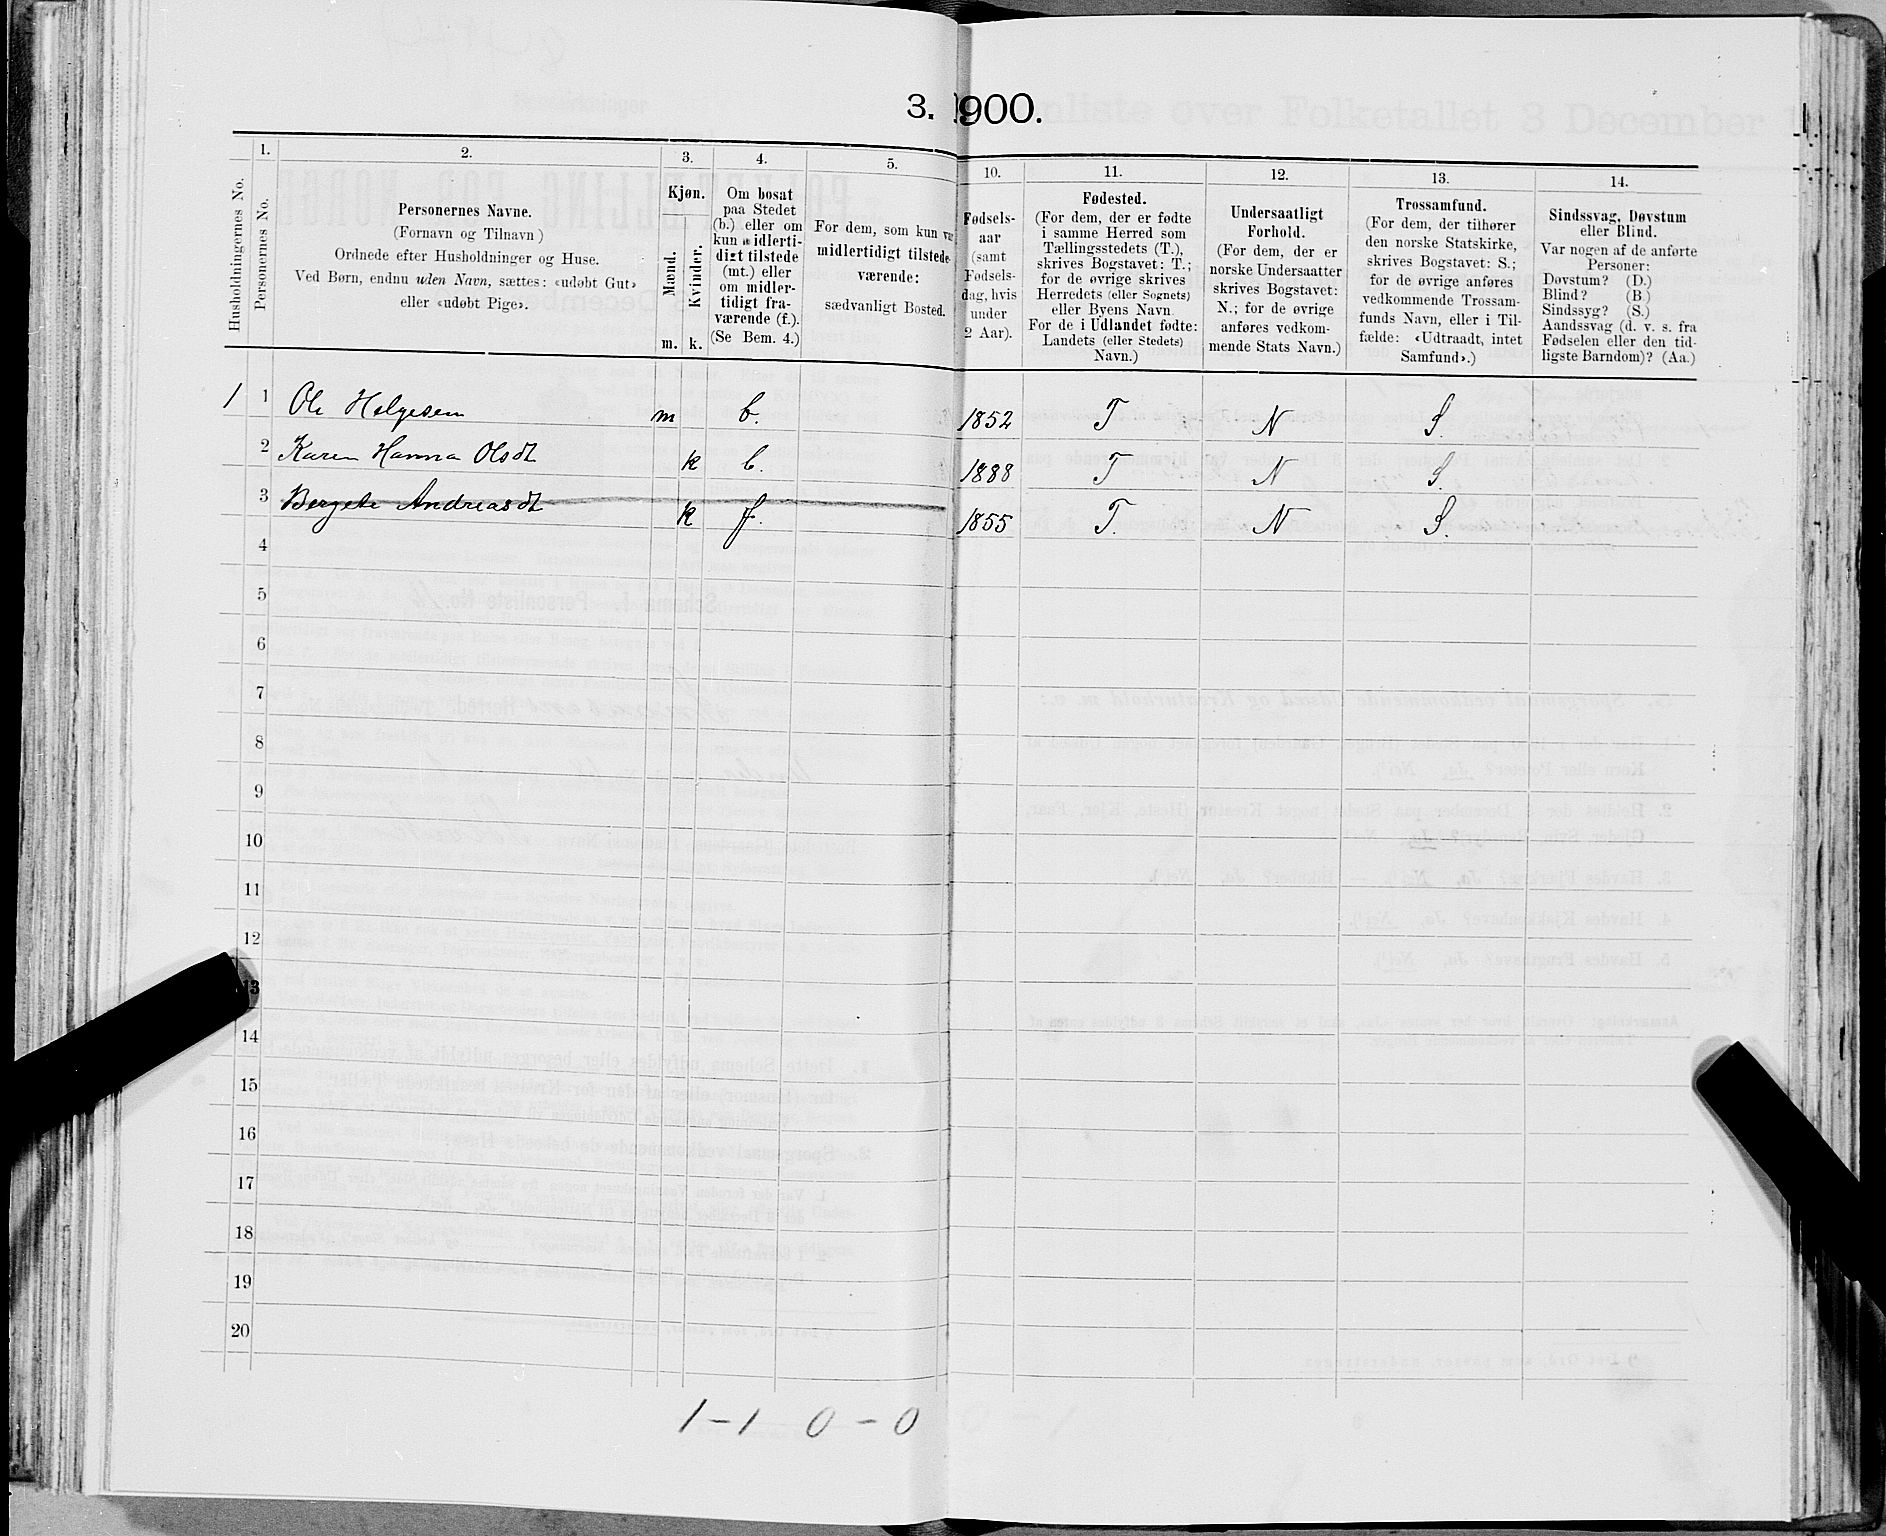 3. 1900.
1. 2. 3. 4. 5. 10. 11. 12. 13. 14.
Husholdningernes No.
Personernes No.
Personernes Navne.
(Fornavn og Tilnavn)
Ordnede efter Husholdninger og Huse.
Ved Børn, endnu uden Navn, sættes: «udøbt Gut»
eller «udøbt Pige».
Kjøn.
Mænd.
Kvinder.
m. k.
Om bosat
paa Stedet
(b.) eller om
kun midlerti-
digt tilstede
(mt.) eller
om midler-
tidigt fra-
værende (f.).
(Se Bem. 4.)
For dem, som kun var
midlertidigt tilstede-
værende:
sædvanligt Bosted.
Fødsels-
aar
(samt
Fødsels-
dag, hvis
under
2 Aar).
Fødested.
(For dem, der er fødte
i samme Herred som
Tællingsstedets (T.),
skrives Bogstavet: T.;
for de øvrige skrives
Herredets (eller Sognets)
eller Byens Navn.
For de i Udlandet fødte:
Landets (eller Stedets)
Navn.)
Undersaatligt
Forhold.
(For dem, der er
norske Undersaatter
skrives Bogstavet:
N.; for de øvrige
anføres vedkom-
mende Stats Navn.)
Trossamfund.
(For dem, der tilhører
den norske Statskirke,
skrives Bogstavet: S.;
for de øvrige anføres
vedkommende Trossam-
funds Navn, eller i Til-
fælde: «Udtraadt, intet
Samfund».)
Sindssvag, Døvstum
eller Blind.
Var nogen af de anførte
Personer:
Døvstum? (D.)
Blind? (B.)
Sindssyg? (S.)
Aandssvag (d. v. s. fra
Fødselen eller den tid-
ligste Barndom)? (Aa.)
1 1 Ole Helgesen m b. 1852 T N S.
2 Karen Hanna Olsdt k b. 1888 T N S.
3 Bergete Andreasdt k f. 1855 T. N S.
4
5
6
7
8
9
10
11
12
13
14
15
16
17
18
19
20
1 - 1 0 - 0